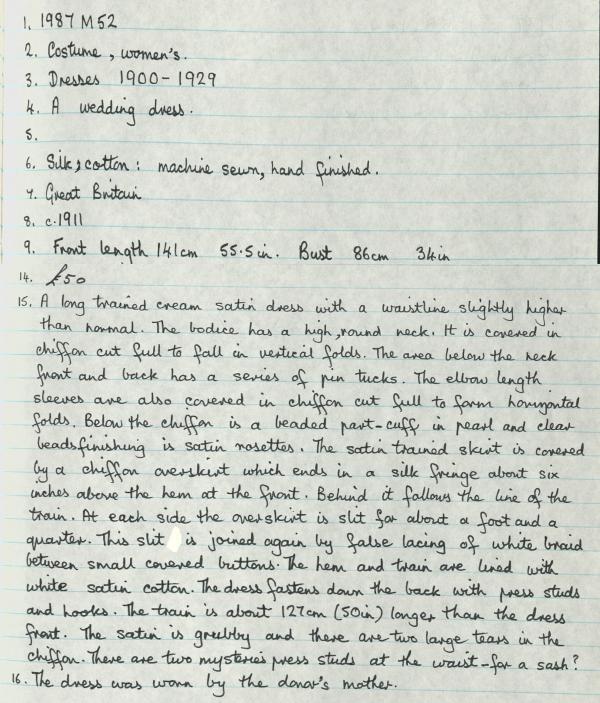 1. 1987 M 52
2. Costume, women's.
3. Dresses 1900-1929
4. A wedding dress.
5.
6. Silk; cotton: machine sewn, hand finished.
7. Great Britain
8. c.1911
9. Front length 141cm 55.5in. Bust 86cm 34in
14. £50
15. A long trained cream satin dress with a waistline slightly higher
than normal. The bodice has a high, round neck. It is covered in
chiffon cut full to fall in vertical folds. The area below the neck
front and back has a series of pin tucks. The elbow length
sleeves are also covered in chiffon cut full to form horizontal
folds. Below the chiffon is a beaded part-cuff in pearl and clear
beads finishing is satin rosettes. The satin trained skirt is covered
by a chiffon overskirt which ends in a silk fringe about six
inches above the hem at the front. Behind it follows the line of the
train. At each side the overskirt is slit for about a foot and a
quarter. This slit is joined again by false lacing of white braid
between small covered buttons. The hem and train are lined with
white satin cotton. The dress fastens down the back with press studs
and hooks. The train is about 127cm (50in) longer than the dress
front. The satin is grubby and there are two large tears in the
chiffon. There are two mysterie press studs at the waist - for a sash?
16. The dress was worn by the donor's mother.